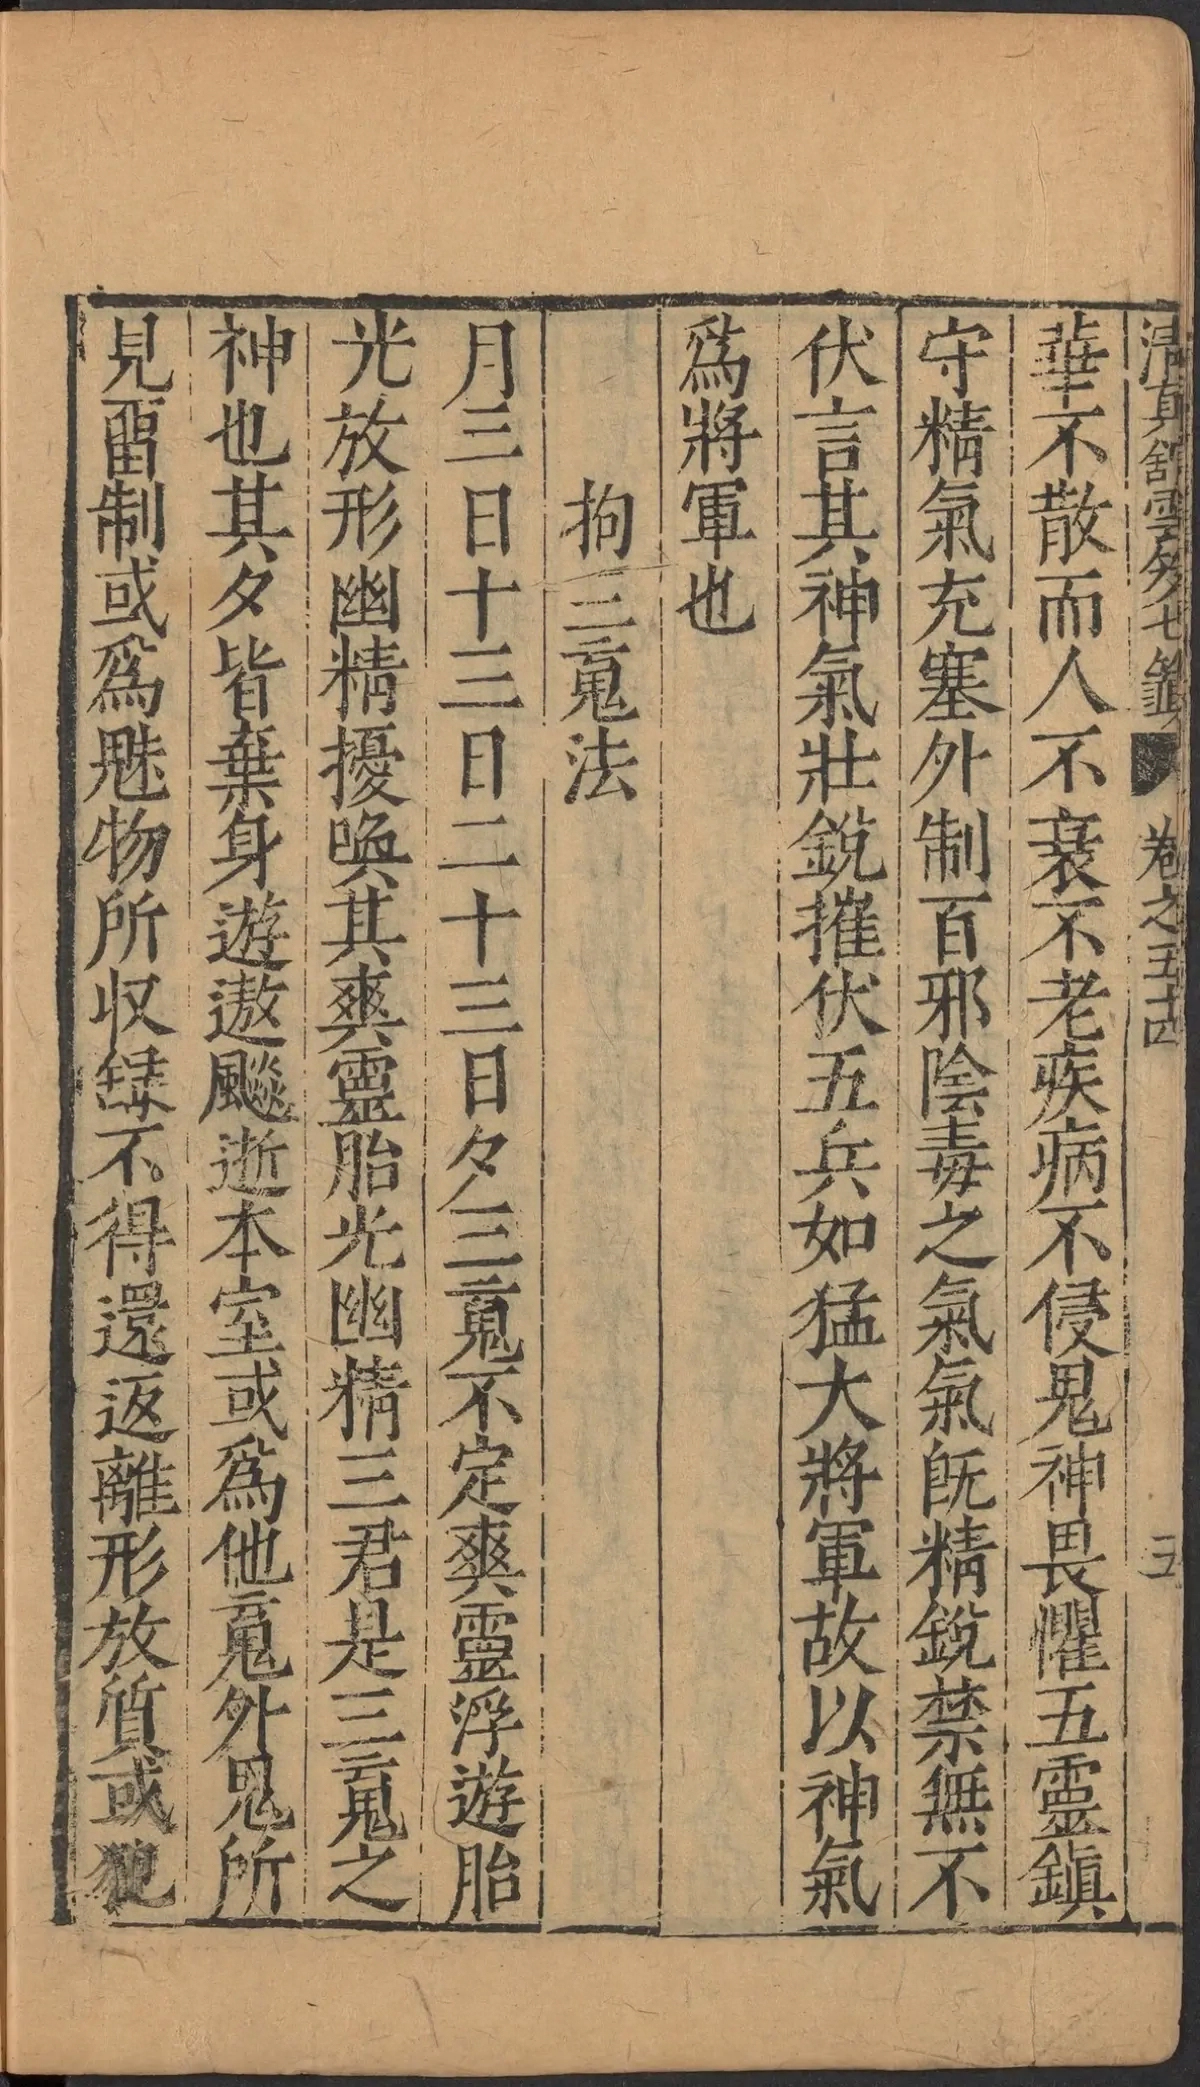 清真舘雲笈七籤 卷之五十四 五
華不散而人不衰不老疾病不侵鬼神畏懼五靈鎮
守精氣充塞外制百邪陰毒之氣氣旣精銳禁無不
伏言其神氣壯銳摧伏五兵如猛大將軍故以神氣
爲將軍也
拘三䰟法
月三日十三日二十三日夕三䰟不定爽靈浮遊胎
光放形幽精擾喚其爽靈胎光幽精三君是三䰟之
神也其夕皆棄身遊遨飈逝本室或爲他䰟外鬼所
見畱制或爲魅物所収録不得還返離形放質或犯